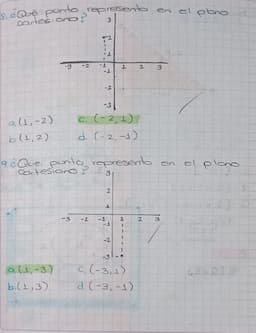 8. ¿Qué punto representa en el plano
cartesiano?
3
2
1
-3 -2 -1 1 2 3
-1
-2
-3
a. (1, -2) c. (-2, 1)
b. (1, 2) d. (-2, -1)
9. ¿Que punto representa en el plano
Cartesiano?
3
2
1
-3 -2 -1 1 2 3
-1
-2
-3
a. (1, -3) c. (-3, 1)
b. (1, 3) d. (-3, -1)